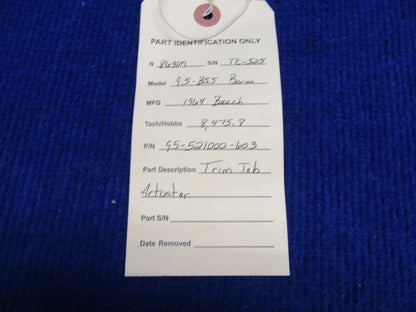 PART IDENTIFICATION ONLY
N 8696M S/N TC-525
Model 95-B55 Baron
MFG 1964 Beech
Tach/Hobbs 8,475.8
P/N 95-521000-603
Part Description Trim Tab
Actuator
Part S/N
Date Removed